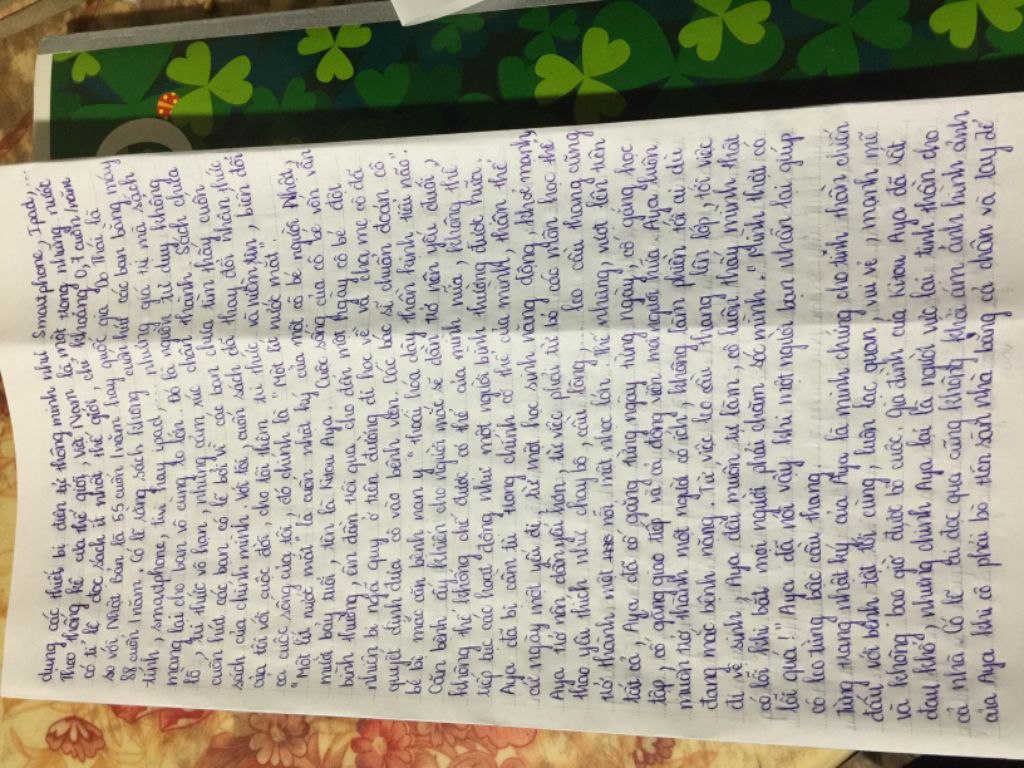 dụng các thiết bị điện tử thông minh như Smartphone, Ipad,...
Theo thống kê của thế giới, Việt Nam là một trong những nước
có tỉ lệ đọc sách ít nhất thế giới, chỉ khoảng 0,7 cuốn/năm
so với Nhật Bản là 55 cuốn/năm hay quốc gia Do Thái là
88 cuốn/năm. Có lẽ rằng sách không cuốn hút các bạn bằng máy
tính, smartphone, tivi hay ipad,... nhưng giá trị mà sách
mang lại cho bạn vô cùng to lớn. Đó là nguồn tư duy khổng
lồ, tri thức vô hạn, những cảm xúc chân thành. Sách chưa
cuốn hút các bạn có lẽ bởi vì các bạn chưa tìm thấy cuốn
sách của chính mình. Với tôi, cuốn sách đã thay đổi nhận thức
của tôi về cuộc đời, cho tôi thêm tri thức, và niềm tin, biến đổi
cả cuộc sống của tôi đó chính là "Một lít nước mắt".
"Một lít nước mắt" là cuốn nhật ký của một cô bé người Nhật,
mười bảy tuổi, tên là Kitou Aya. Cuộc sống của cô bé vốn vẫn
bình thường, êm đềm trôi qua cho đến một ngày cô bé đột
nhiên bị ngã quỵ ở trên đường đi học về và cha mẹ cô đã
quyết định đưa cô vào bệnh viện. Các bác sĩ chuẩn đoán cô
bé bị mắc căn bệnh nan y "thoái hóa dây thần kinh tiểu não".
Căn bệnh ấy khiến cho người mắc sẽ dần trở nên yếu đuối,
không thể khống chế được cơ thể của mình nữa, không thể
tiếp tục các hoạt động như một người bình thường được nữa.
Aya đã bị cầm tù trong chính cơ thể của mình, thân thể
cứ ngày một yếu đi, từ một học sinh năng động, khỏe mạnh,
Aya trở nên dần yếu hơn, từ việc phải từ bỏ các môn học thể
thao yêu thích như chạy bộ, cầu lông, ... leo cầu thang cũng
trở thành một nỗi mệt nhọc lớn. Thế nhưng, vượt lên trên
tất cả, Aya đã cố gắng từng ngày từng ngày, cố gắng học
tập, cố gắng giao tiếp và cả động viên mọi người nữa. Aya luôn
muốn trở thành một người có ích, không làm phiền tới ai dù
đang mắc bệnh nặng. Từ việc leo cầu thang lên lớp, tới việc
đi vệ sinh, Aya đều muốn tự làm, cô luôn thấy mình thật
có lỗi khi bắt mọi người phải chăm sóc mình. "Mình thật có
lỗi quá!" Aya đã nói vậy khi một người bạn nhân hậu giúp
cô leo từng bậc cầu thang.
Từng trang nhật ký của Aya là minh chứng cho tinh thần chiến
đấu với bệnh tật tới cùng, luôn lạc quan, vui vẻ, mạnh mẽ
và không bao giờ được bỏ cuộc. Gia đình của Kitou Aya đã rất
đau khổ, nhưng chính Aya lại là người vực lại tinh thần cho
cả nhà. Có lẽ ai đọc qua cũng không khỏi ám ảnh hình ảnh
của Aya khi cô phải bò trên sàn nhà bằng cả chân và tay để